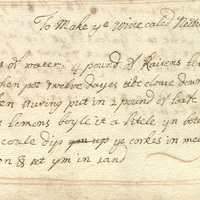 To Make ye Wine caled
s of water. 4 pound of Raisens
hen pot twelve dayes tide close down
en stureing put in 2 pound of loafe
lemons boyle it a litele yn
coale dip ym up ye corkes in
on & set ym in sand